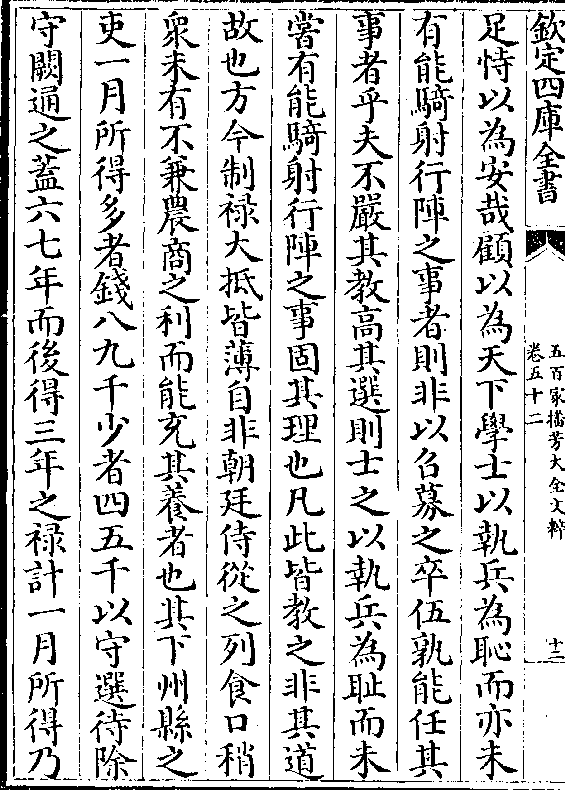 欽定四庫全書
五百家播芳大全文粹
卷五十二
十二
足恃以為安哉顧以為天下學士以執兵為恥而亦未
有能騎射行陣之事者則非以召募之卒伍孰能任其
事者乎夫不嚴其教高其選則士之以執兵為耻而未
嘗有能騎射行陣之事固其理也凡此皆教之非其道
故也方今制禄大抵皆薄自非朝廷侍從之列食口稍
衆未有不兼農商之利而能充其養者也其下州縣之
吏一月所得多者錢八九千少者四五千以守選待除
守闕通之蓋六七年而後得三年之禄計一月所得乃